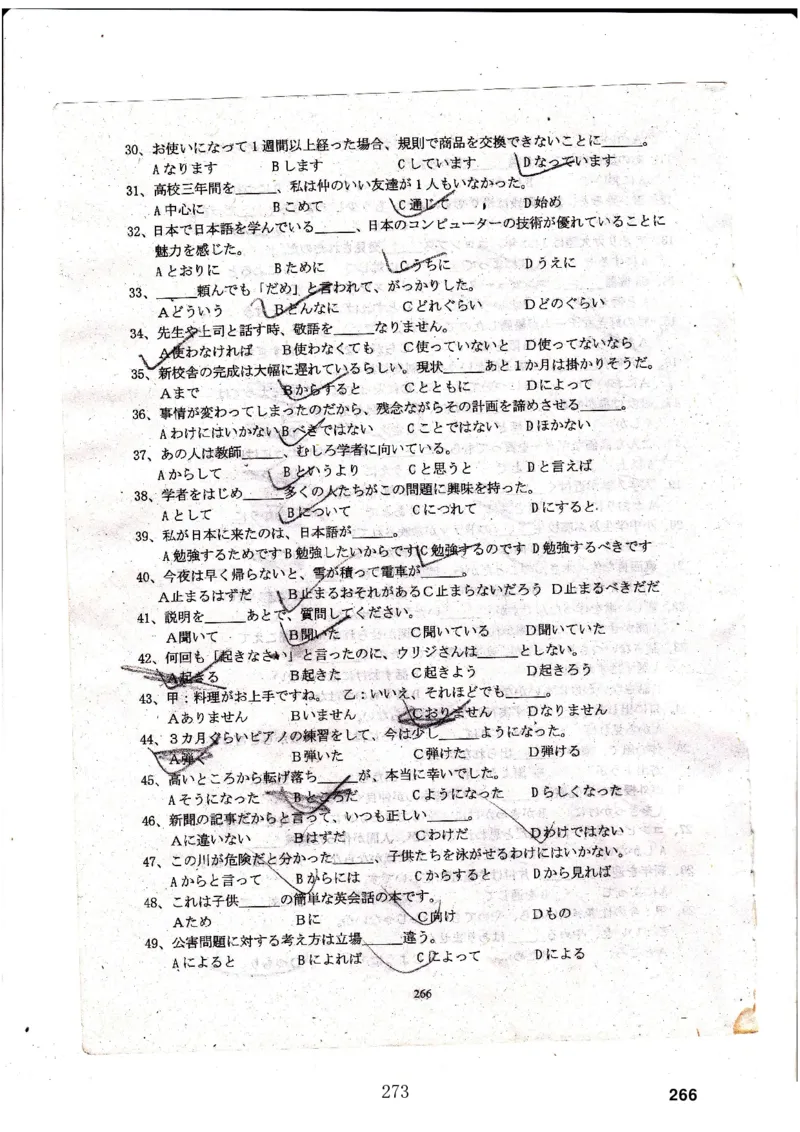 30、お使いになって1週間以上経った場合、規則で商品を交換できないことに_____。
Aなります Bします Cしています Dなっています
31、高校三年間を_____、私は仲のいい友達が1人もいなかった。
A中心に Bこめて C通じて D始め
32、日本で日本語を学んでいる_____、日本のコンピューターの技術が優れていることに
魅力を感じた。
Aとおりに Bために Cうちに Dうえに
33、_____頼んでも「だめ」と言われて、がっかりした。
Aどういう Bどんなに Cどれぐらい Dどのぐらい
34、先生や上司と話す時、敬語を_____なりません。
A使わなければ B使わなくても C使っていないと D使ってないなら
35、新校舎の完成は大幅に遅れているらしい。現状_____あと1か月は掛かりそうだ。
Aまで Bからすると Cとともに Dによって
36、事情が変わってしまったのだから、残念ながらその計画を諦めさせる_____。
Aわけにはいかない Bべきではない Cことではない Dほかない
37、あの人は教師_____、むしろ学者に向いている。
Aからして Bというより Cと思うと Dと言えば
38、学者をはじめ_____多くの人たちがこの問題に興味を持った。
Aとして Bについて Cにつれて Dにすると
39、私が日本に来たのは、日本語が_____。
A勉強するためです B勉強したいからです C勉強するのです D勉強するべきです
40、今夜は早く帰らないと、雪が積って電車が_____。
A止まるはずだ B止まるおそれがある C止まらないだろう D止まるべきだだ
41、説明を_____あとで、質問してください。
A聞いて B聞いた C聞いている D聞いていた
42、何回も「起きなさい」と言ったのに、ウリジさんは_____としない。
A起きる B起きた C起きよう D起きろう
43、甲：料理がお上手ですね。 乙：いいえ、それほどでも_____。
Aありません Bいません Cおりません Dなりません
44、3カ月ぐらいピアノの練習をして、今は少し_____ようになった。
A弾く B弾いた C弾けた D弾ける
45、高いところから転げ落ち_____が、本当に幸いでした。
Aそうになった Bところだ Cようになった Dらしくなった
46、新聞の記事だからと言って、いつも正しい_____。
Aに違いない Bはずだ Cわけだ Dわけではない
47、この川が危険だと分かった_____、子供たちを泳がせるわけにはいかない。
Aからと言って Bからには Cからすると Dから見れば
48、これは子供_____の簡単な英会話の本です。
Aため Bに C向け Dもの
49、公害問題に対する考え方は立場_____違う。
Aによると Bによれば Cによって Dによる
266
273
266